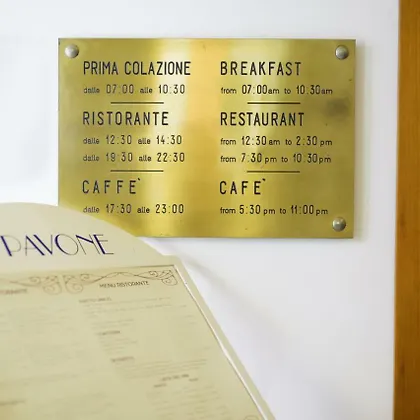 PRIMA COLAZIONE
dalle 07:00 alle 10:30
RISTORANTE
dalle 12:30 alle 14:30
dalle 19:30 alle 22:30
CAFFE`
dalle 17:30 alle 23:00
BREAKFAST
from 07:00am to 10:30am
RESTAURANT
from 12:30am to 2:30pm
from 7:30pm to 10:30pm
CAFE`
from 5:30pm to 11:00pm
PAVONE
MENU RISTORANTE